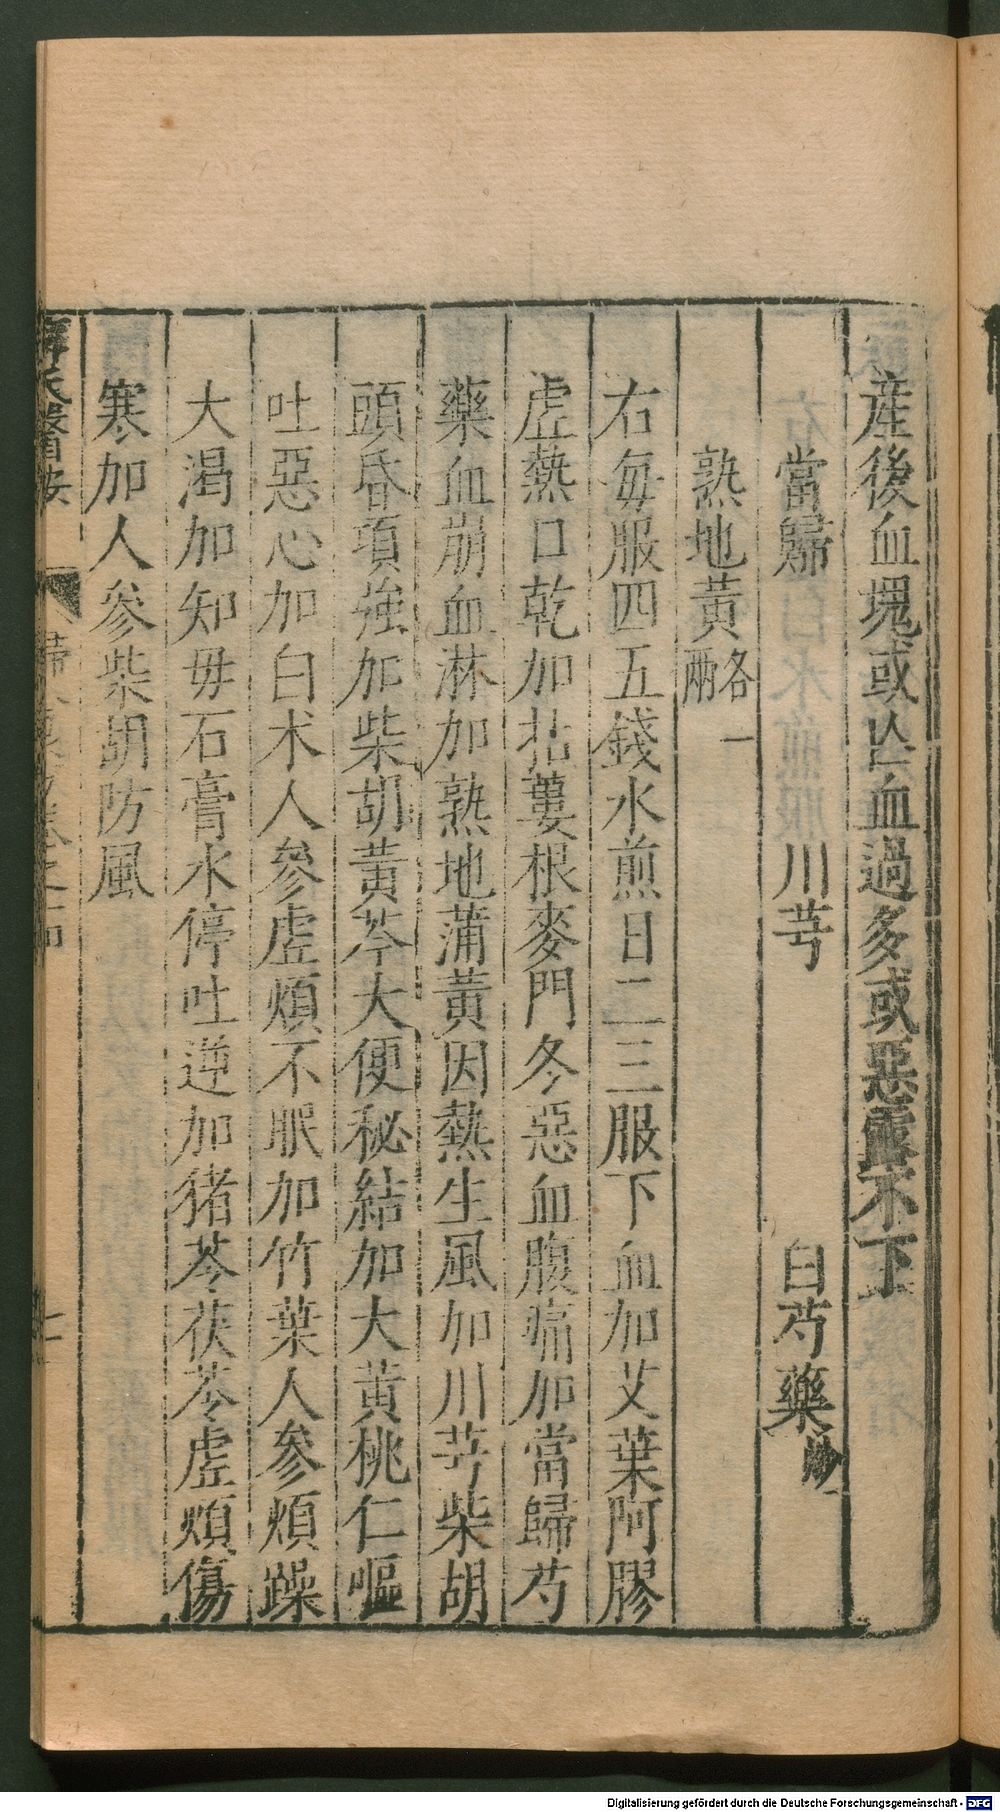 産後血塊或亡血過多或惡露不下
當歸 川芎 白芍藥炒
熟地黄各一兩
右每服四五錢水煎日二三服下血加艾葉阿膠
虛熱口乾加括蔞根麥門冬惡血腹痛加當歸芍
藥血崩血淋加熟地蒲黄因熱生風加川芎柴胡
頭昏項強加柴胡黄芩大便秘結加大黄桃仁嘔
吐惡心加白术人參虛煩不眠加竹葉人參煩躁
大渴加知毋石膏水停吐逆加猪苓茯苓虛煩傷
寒加人參柴胡防風
薛氏醫按 卷之二十四
Digitalisierung gefördert durch die Deutsche Forschungsgemeinschaft - DFG